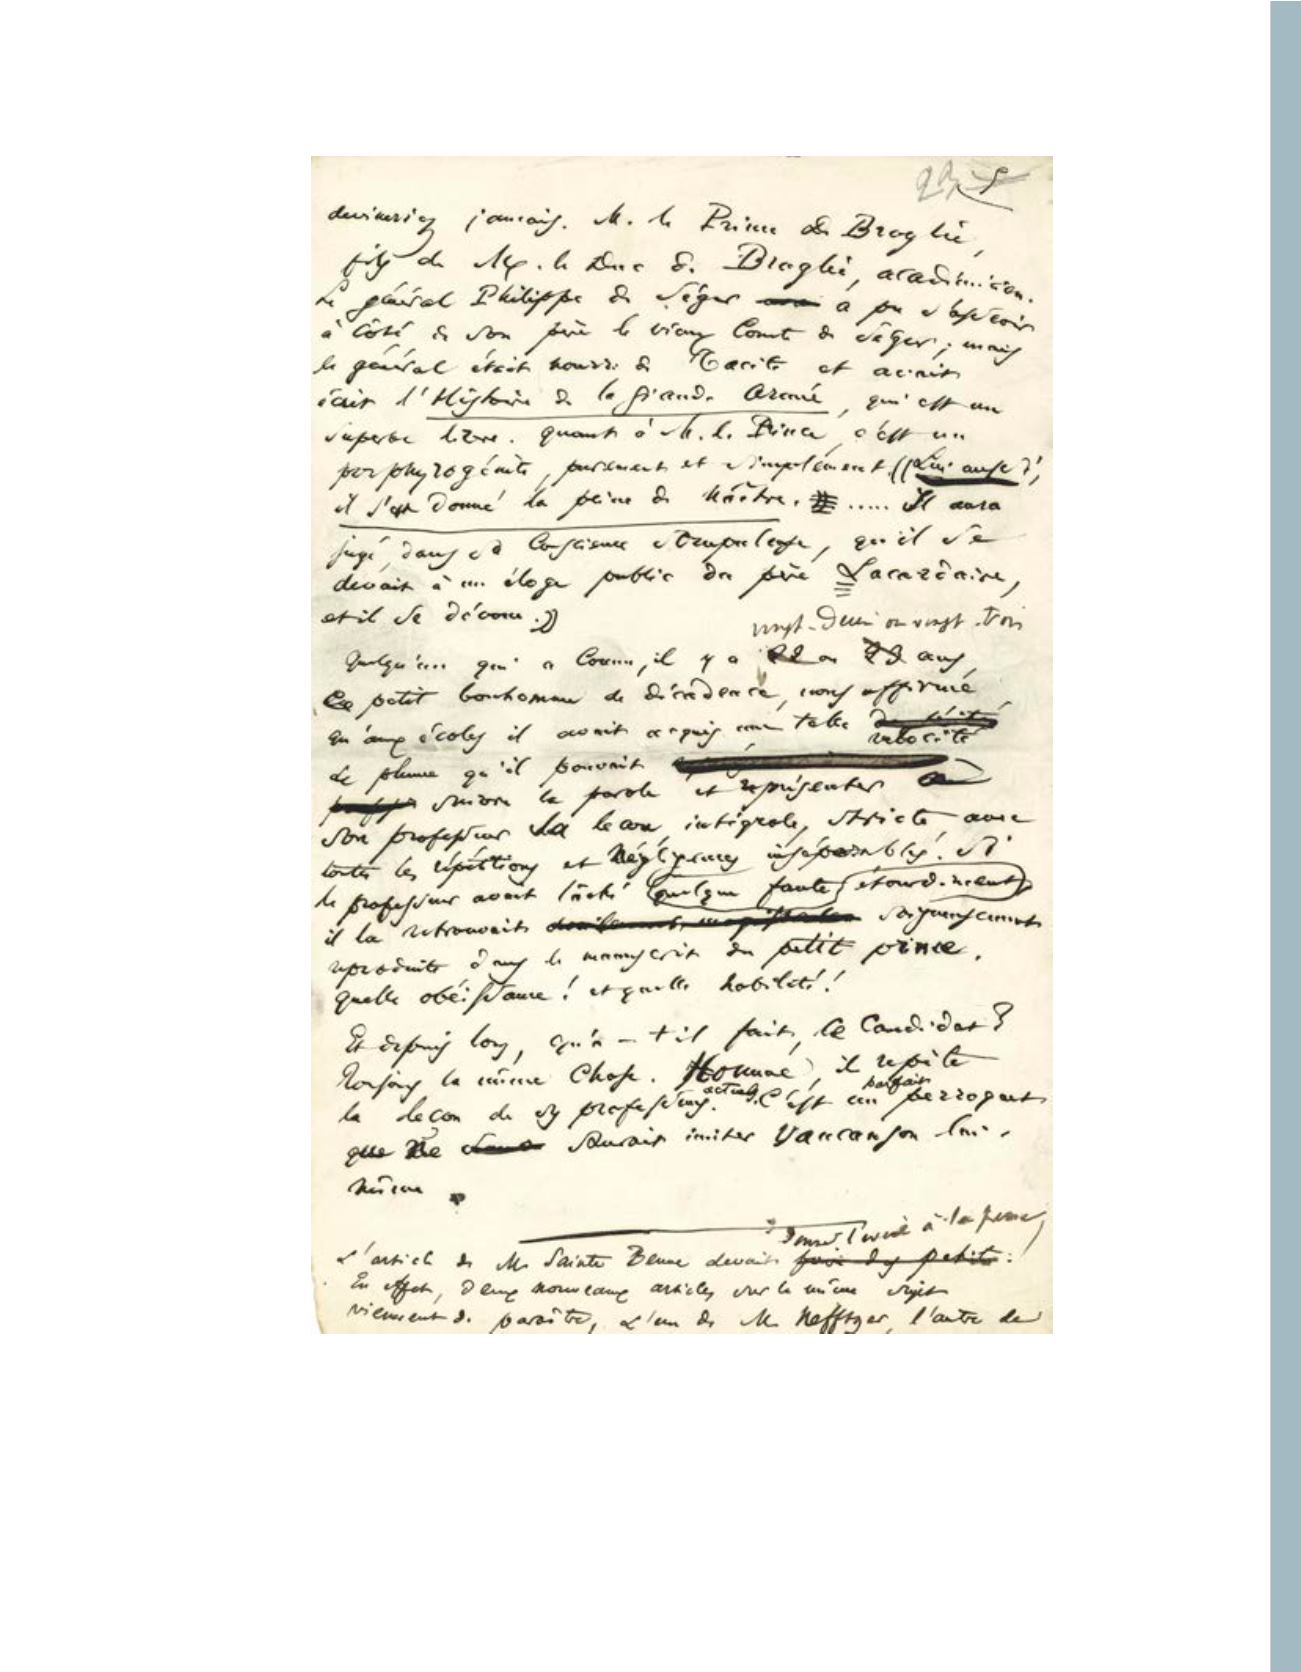 devineriez jamais. M. le Prince de Broglie,
fils de M. le Duc de Broglie, académicien.
Le général Philippe de Ségur a pu s'asseoir
à côté de son père le vieux Comte de Ségur ; mais
le général était nourri de Tacite et avait
écrit l'Histoire de la Grande Armée, qui est un
superbe livre. quant à M. le Prince, c'est un
porphyrogénète, purement et simplement. ((Lui aussi,
il s'est donné la peine de naître. ..... Il aura
jugé, dans sa conscience scrupuleuse, qu'il se
devait à un éloge public du père Lacordaire,
et il se dévoue.))
vingt-deux ou vingt-trois
Quelqu'un qui a connu, il y a 22 ou 23 ans,
ce petit bonhomme de décadence, nous affirme
qu'aux écoles il avait acquis une telle
vélocité
de plume qu'il pouvait
suivre la parole et représenter à
son professeur sa leçon intégrale, stricte, avec
toutes les répétitions et négligences inséparables. Si
le professeur avait lâché quelque faute étourdiment
il la retrouvait soigneusement
reproduite dans le manuscrit du petit prince.
quelle obéissance ! et quelle habileté !
Et depuis lors, qu'a-t-il fait, le candidat ?
Toujours la même chose. Homme, il répète
la leçon de ses professeurs
actuels. C'est un parfait perroquet
que ne saurait imiter Vaucanson lui-
même.
donner l'éveil à la presse,
L'article de M. Sainte Beuve devait faire des petits :
En effet, deux nouveaux articles sur le même sujet
viennent de paraître, L'un de M. Nefftzer, l'autre de